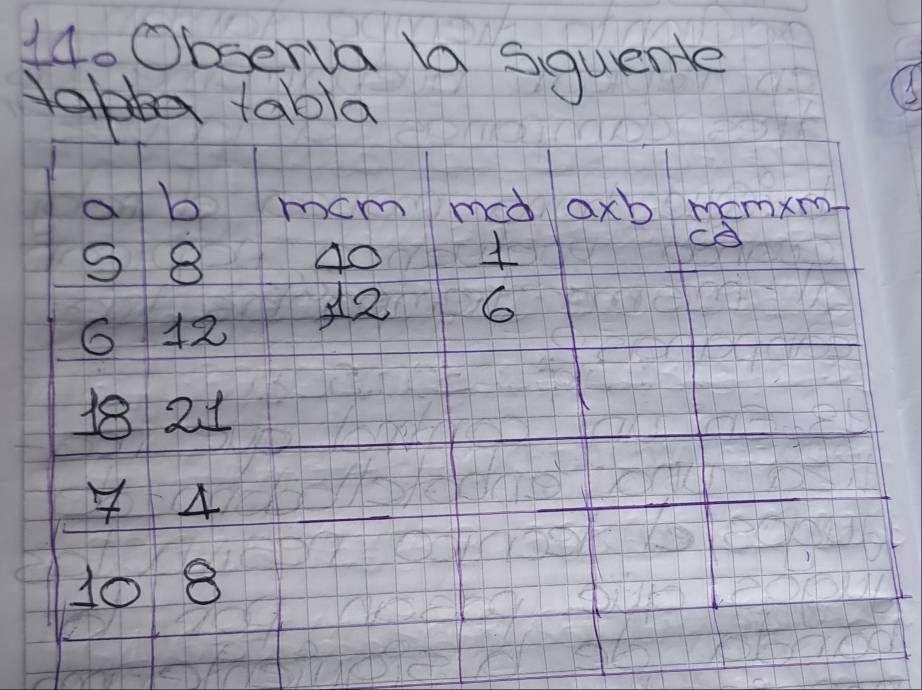 14. Observa la siguiente
tabla
a b mcm mcd axb mcmxm-
cd
5 8 40 1
6 12 12 6
18 21
7 4
10 8